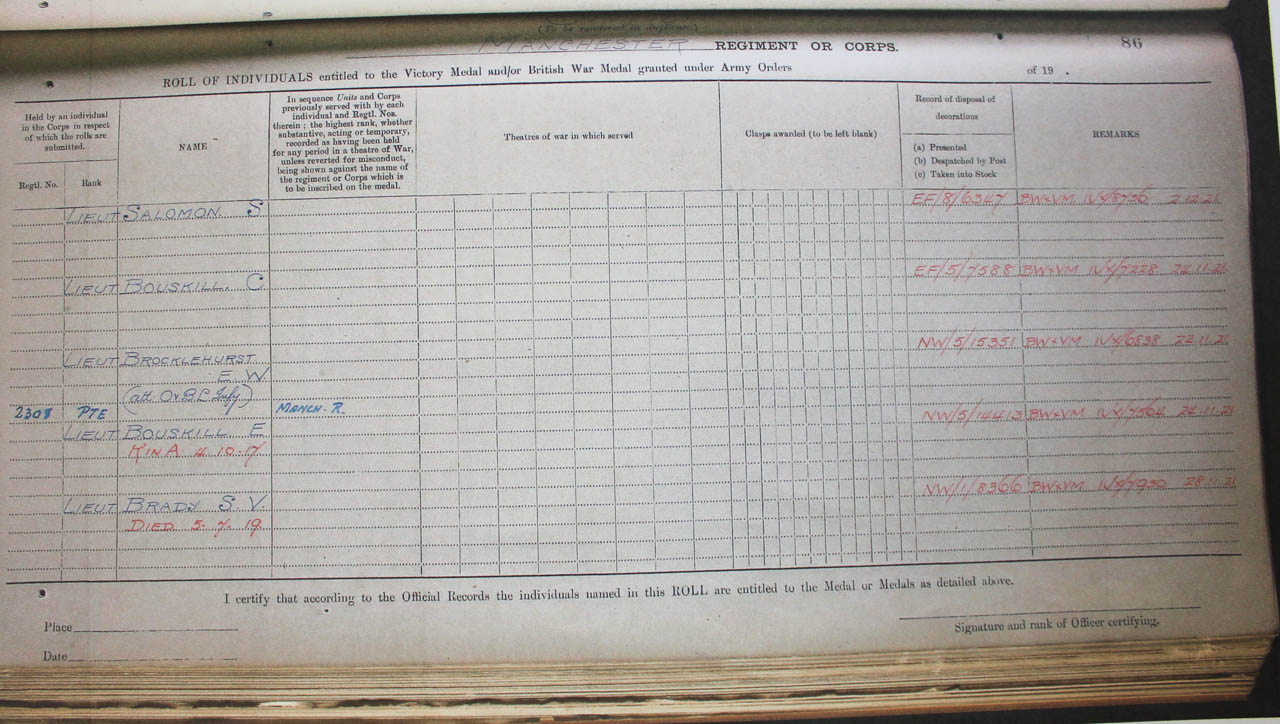 (To be rendered in duplicate.)
MANCHESTER REGIMENT OR CORPS. 86
ROLL OF INDIVIDUALS entitled to the Victory Medal and/or British War Medal granted under Army Orders of 19 .
Held by an individual
in the Corps in respect
of which the rolls are
submitted.
Regtl. No.
Rank
NAME
In sequence Units and Corps
previously served with by each
individual and Regtl. Nos.
therein ; the highest rank, whether
substantive, acting or temporary,
recorded as having been held
for any period in a theatre of War,
unless reverted for misconduct,
being shown against the name of
the regiment or Corps which is
to be inscribed on the medal.
Theatres of war in which served
Clasps awarded (to be left blank)
Record of disposal of
decorations
(a) Presented
(b) Despatched by Post
(c) Taken into Stock
REMARKS
LIEUT SALOMON. S EF/8/6347 BW&VM IV/X/8736 2.12.21
LIEUT BOUSKILL. C EF/5/7588 BW&VM IV/X/7228 24.11.21
LIEUT BROCKLEHURST NW/5/15351 BW&VM IV/X/6838 22.11.21
E W
2308 PTE MANCH. R.
LIEUT BOUSKILL E NW/5/14413 BW&VM IV/X/7564 24.11.21
K IN A. 4. 10. 17
LIEUT BRADY S. V. NW/1/8366 BW&VM IV/X/7930 28.11.21
DIED 5. 7. 19.
I certify that according to the Official Records the individuals named in this ROLL are entitled to the Medal or Medals as detailed above.
Place
Signature and rank of Officer certifying.
Date